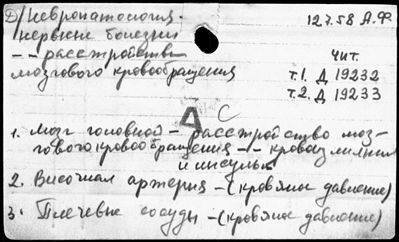 Д/Невропатология.
нервные болезни
-- расстройства
мозгового кровообращения
127.58 А.Ф.
Чит.
т.1. Д 19232
т.2. Д 19233
А С
1. Мозг головной - расстройство моз-
гового кровообращения -- кровоизлияния
и инсульты
2. Височная артерия - (кровяное давление)
3. Плечевые сосуды - (кровяное давление)